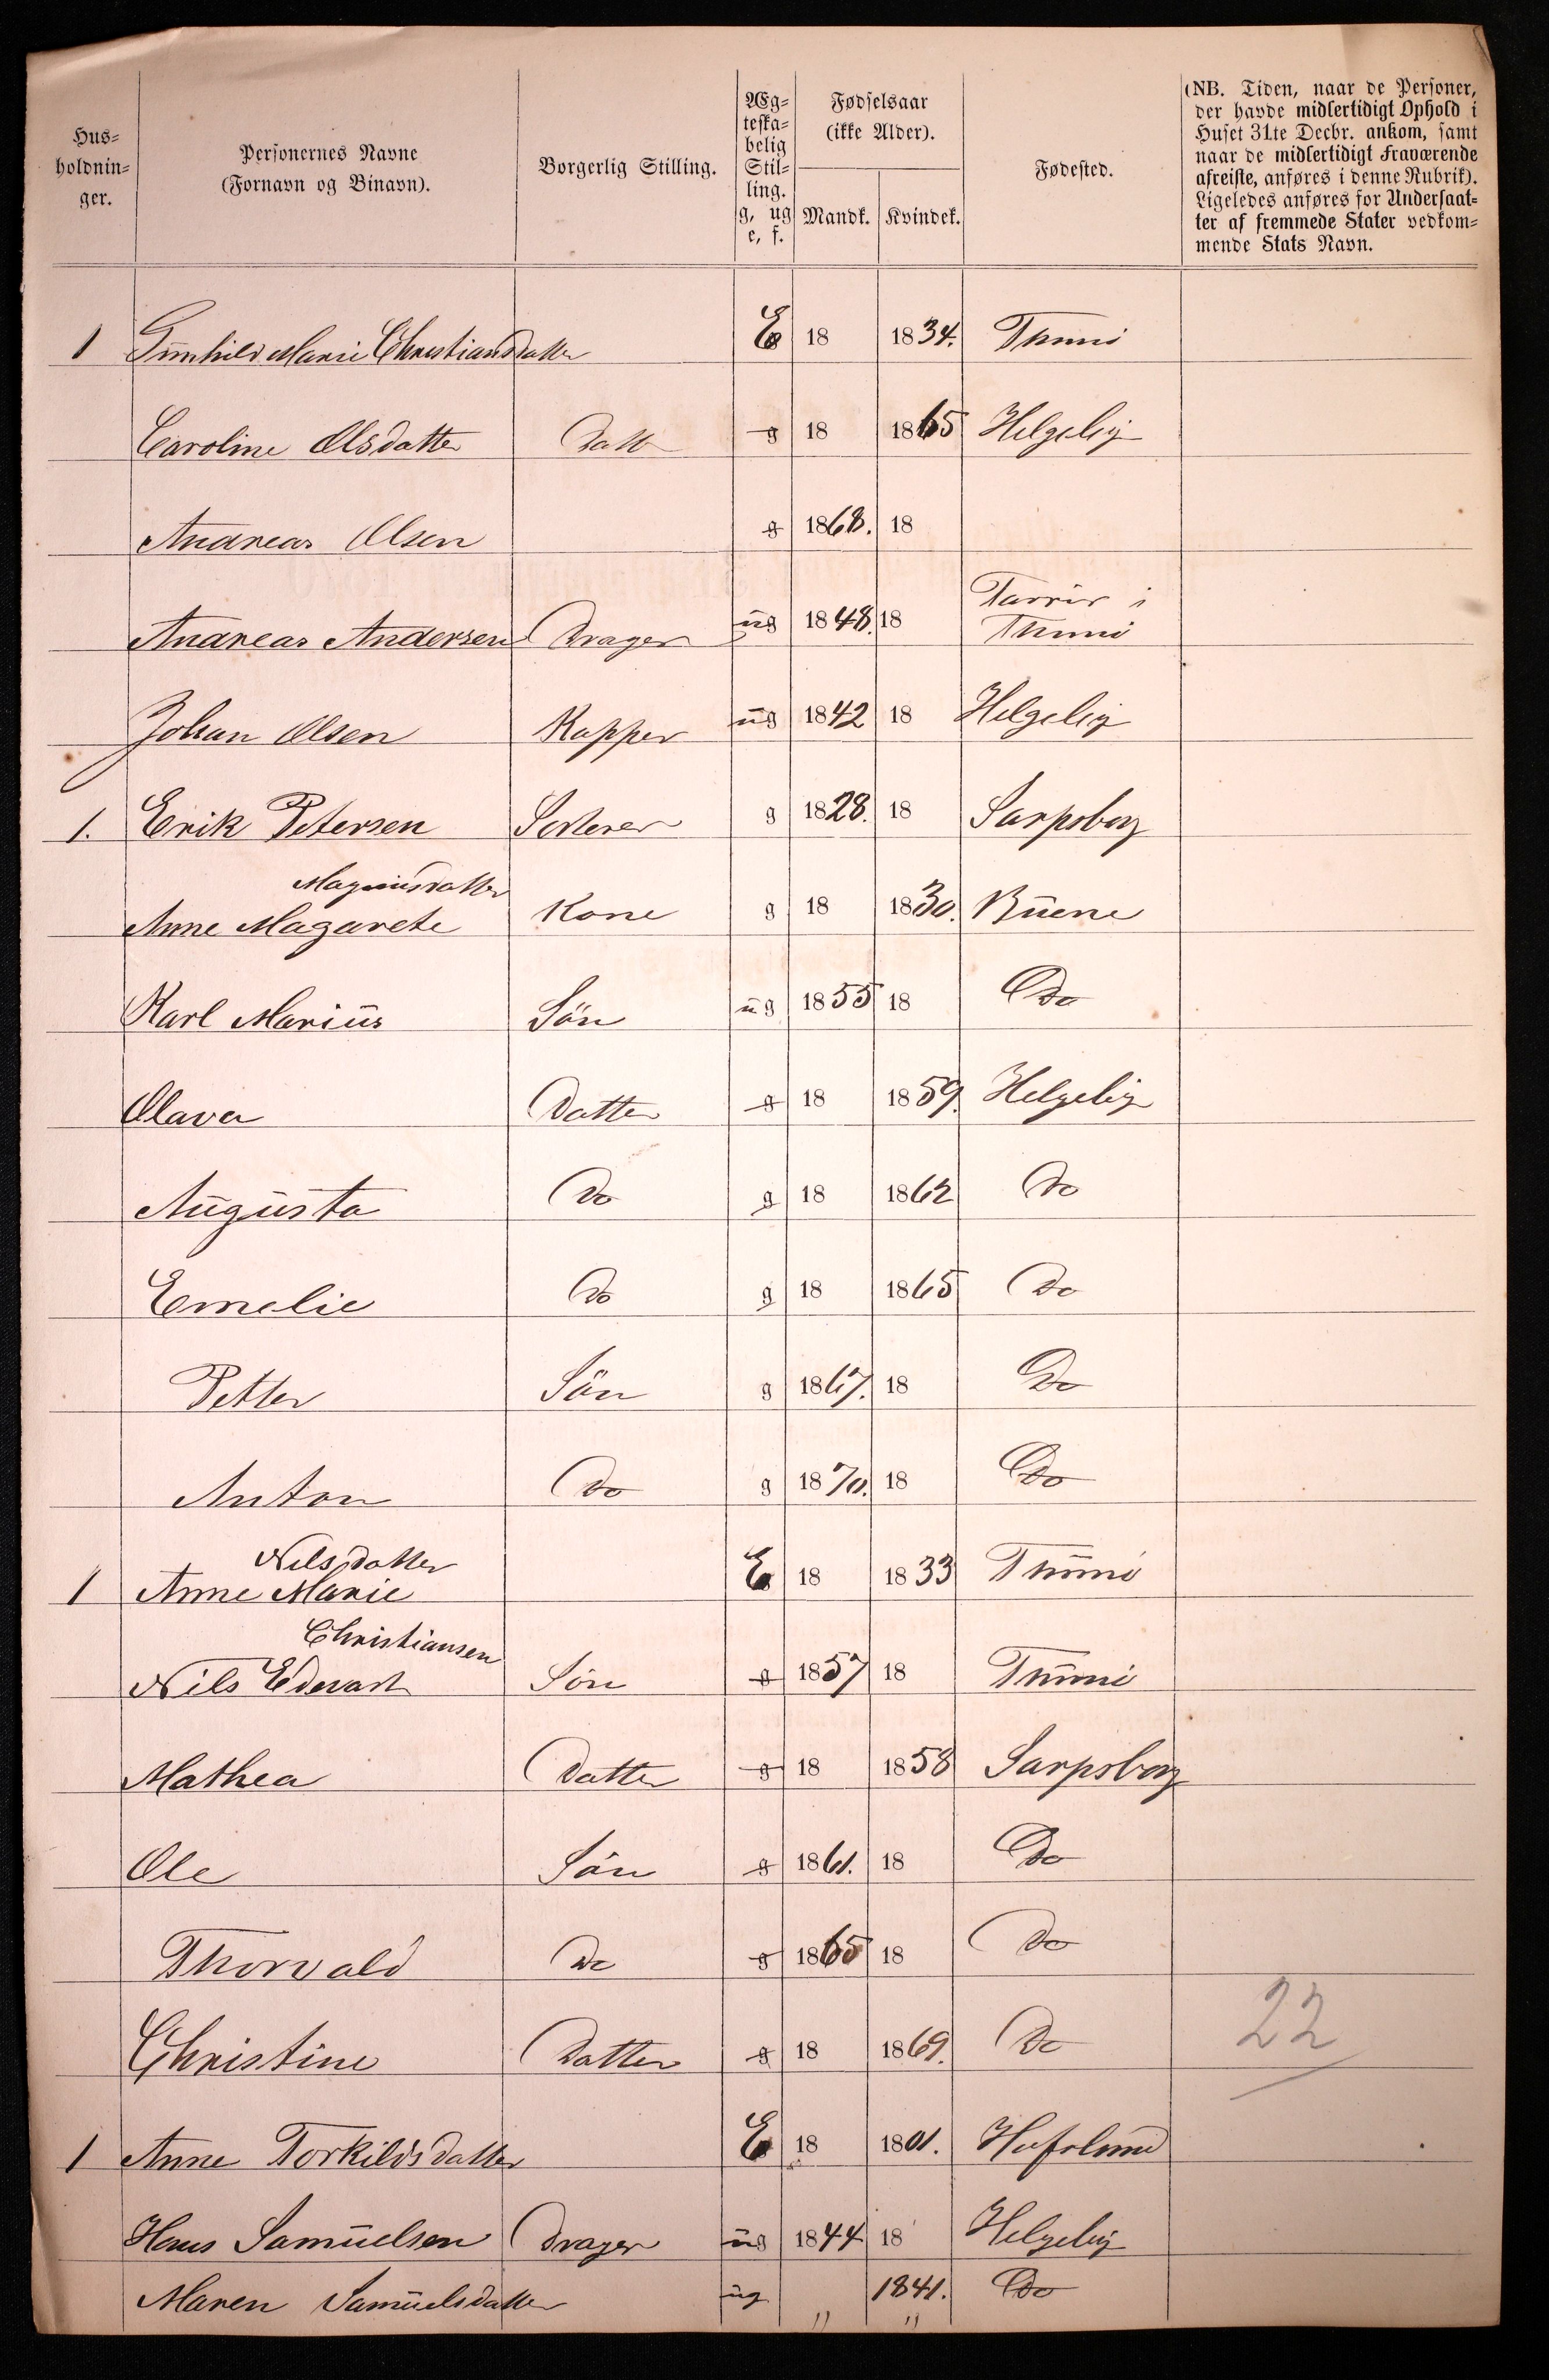 Hus-
holdnin-
ger.
Personernes Navne
(Fornavn og Binavn).
Borgerlig Stilling.
Æg-
teska-
belig
Stil-
ling.
g, ug
e, f.
Fødselsaar
(ikke Alder).
Mandk. Kvindek.
Fødested.
(NB. Tiden, naar de Personer,
der havde midlertidigt Ophold i
Huset 31te Decbr. ankom, samt
naar de midlertidigt Fraværende
afreiste, anføres i denne Rubrik).
Ligeledes anføres for Undersaat-
ter af fremmede Stater vedkom-
mende Stats Navn.
1 Gunhild Marie Christiansdatter E 18 1834. Thunø
Caroline Olsdatter Datt g 18 1865 Helgeby
Andreas Olsen g 1868. 18
Andreas Andersen Drager ug 1848. 18 i Thunø
Johan Olsen Kapper ug 1842 18 Helgeby
1. Erik Petersen Sorterer g 1828. 18 Sarpsborg
Magnusdatter
Anne Magarete Kone g 18 1830. Ruene
Karl Marius Sön ug 1855 18 Do
Olava Datter g 18 1859. Helgeby
Augusta Do g 18 1862 Do
Emelie Do g 18 1865 Do
Petter Sön g 1867. 18 Do
Anton Do g 1870. 18 Do
Nilsdatter
1 Anne Marie E 18 1833 Thunø
Christiansen
Nils Edevart Sön g 1857 18 Thunø
Mathea Datter g 18 1858 Sarpsborg
Ole Sön g 1861. 18 Do
Thorvald Do g 1865 18 Do
Christine Datter g 18 1869. Do
22
1 Anne Torkildsdatter E 18 1801. Hafslund
Hans Samuelsen Drager ug 1844 18 Helgeby
Maren Samuelsdatter ug " 1841. " Do